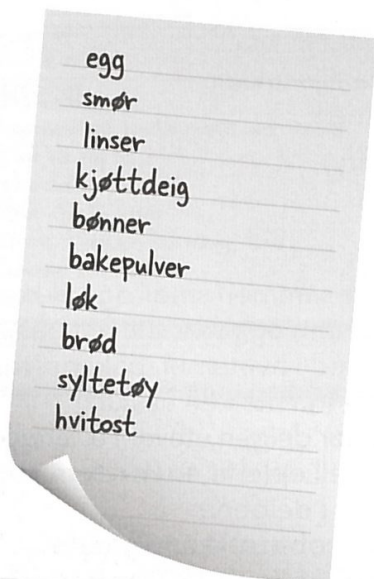 egg
smør
linser
kjøttdeig
bønner
bakepulver
løk
brød
syltetøy
hvitost